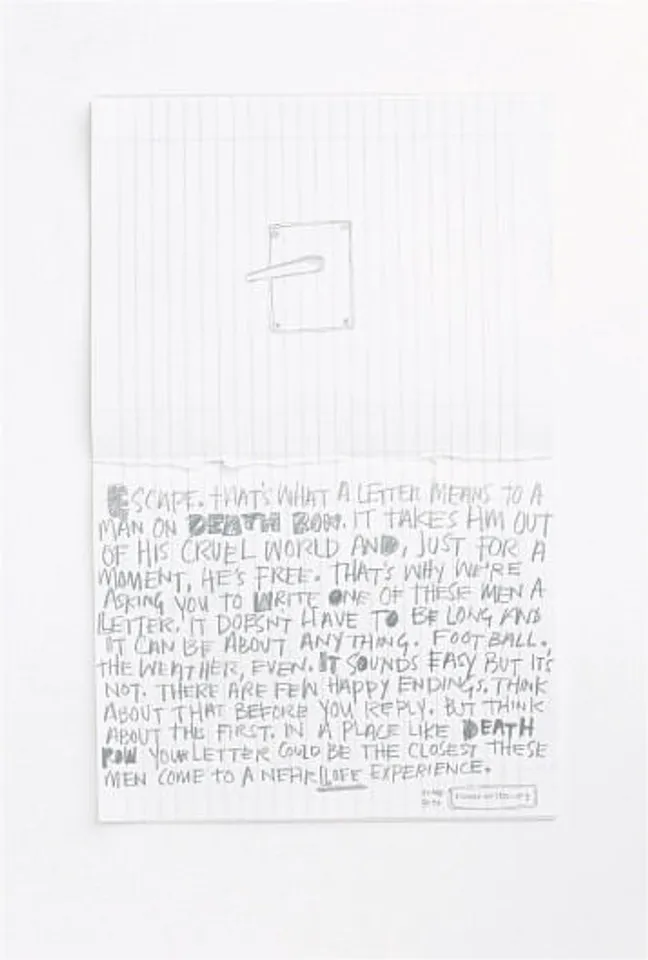 ESCAPE. THAT'S WHAT A LETTER MEANS TO A
MAN ON DEATH ROW. IT TAKES HIM OUT
OF HIS CRUEL WORLD AND, JUST FOR A
MOMENT, HE'S FREE. THAT'S WHY WE'RE
ASKING YOU TO WRITE ONE OF THESE MEN A
LETTER. IT DOESN'T HAVE TO BE LONG AND
IT CAN BE ABOUT ANYTHING. FOOTBALL.
THE WEATHER, EVEN. IT SOUNDS EASY BUT IT'S
NOT. THERE ARE FEW HAPPY ENDINGS. THINK
ABOUT THAT BEFORE YOU REPLY. BUT THINK
ABOUT THIS FIRST. IN A PLACE LIKE DEATH
ROW YOUR LETTER COULD BE THE CLOSEST THESE
MEN COME TO A NEAR LIFE EXPERIENCE.